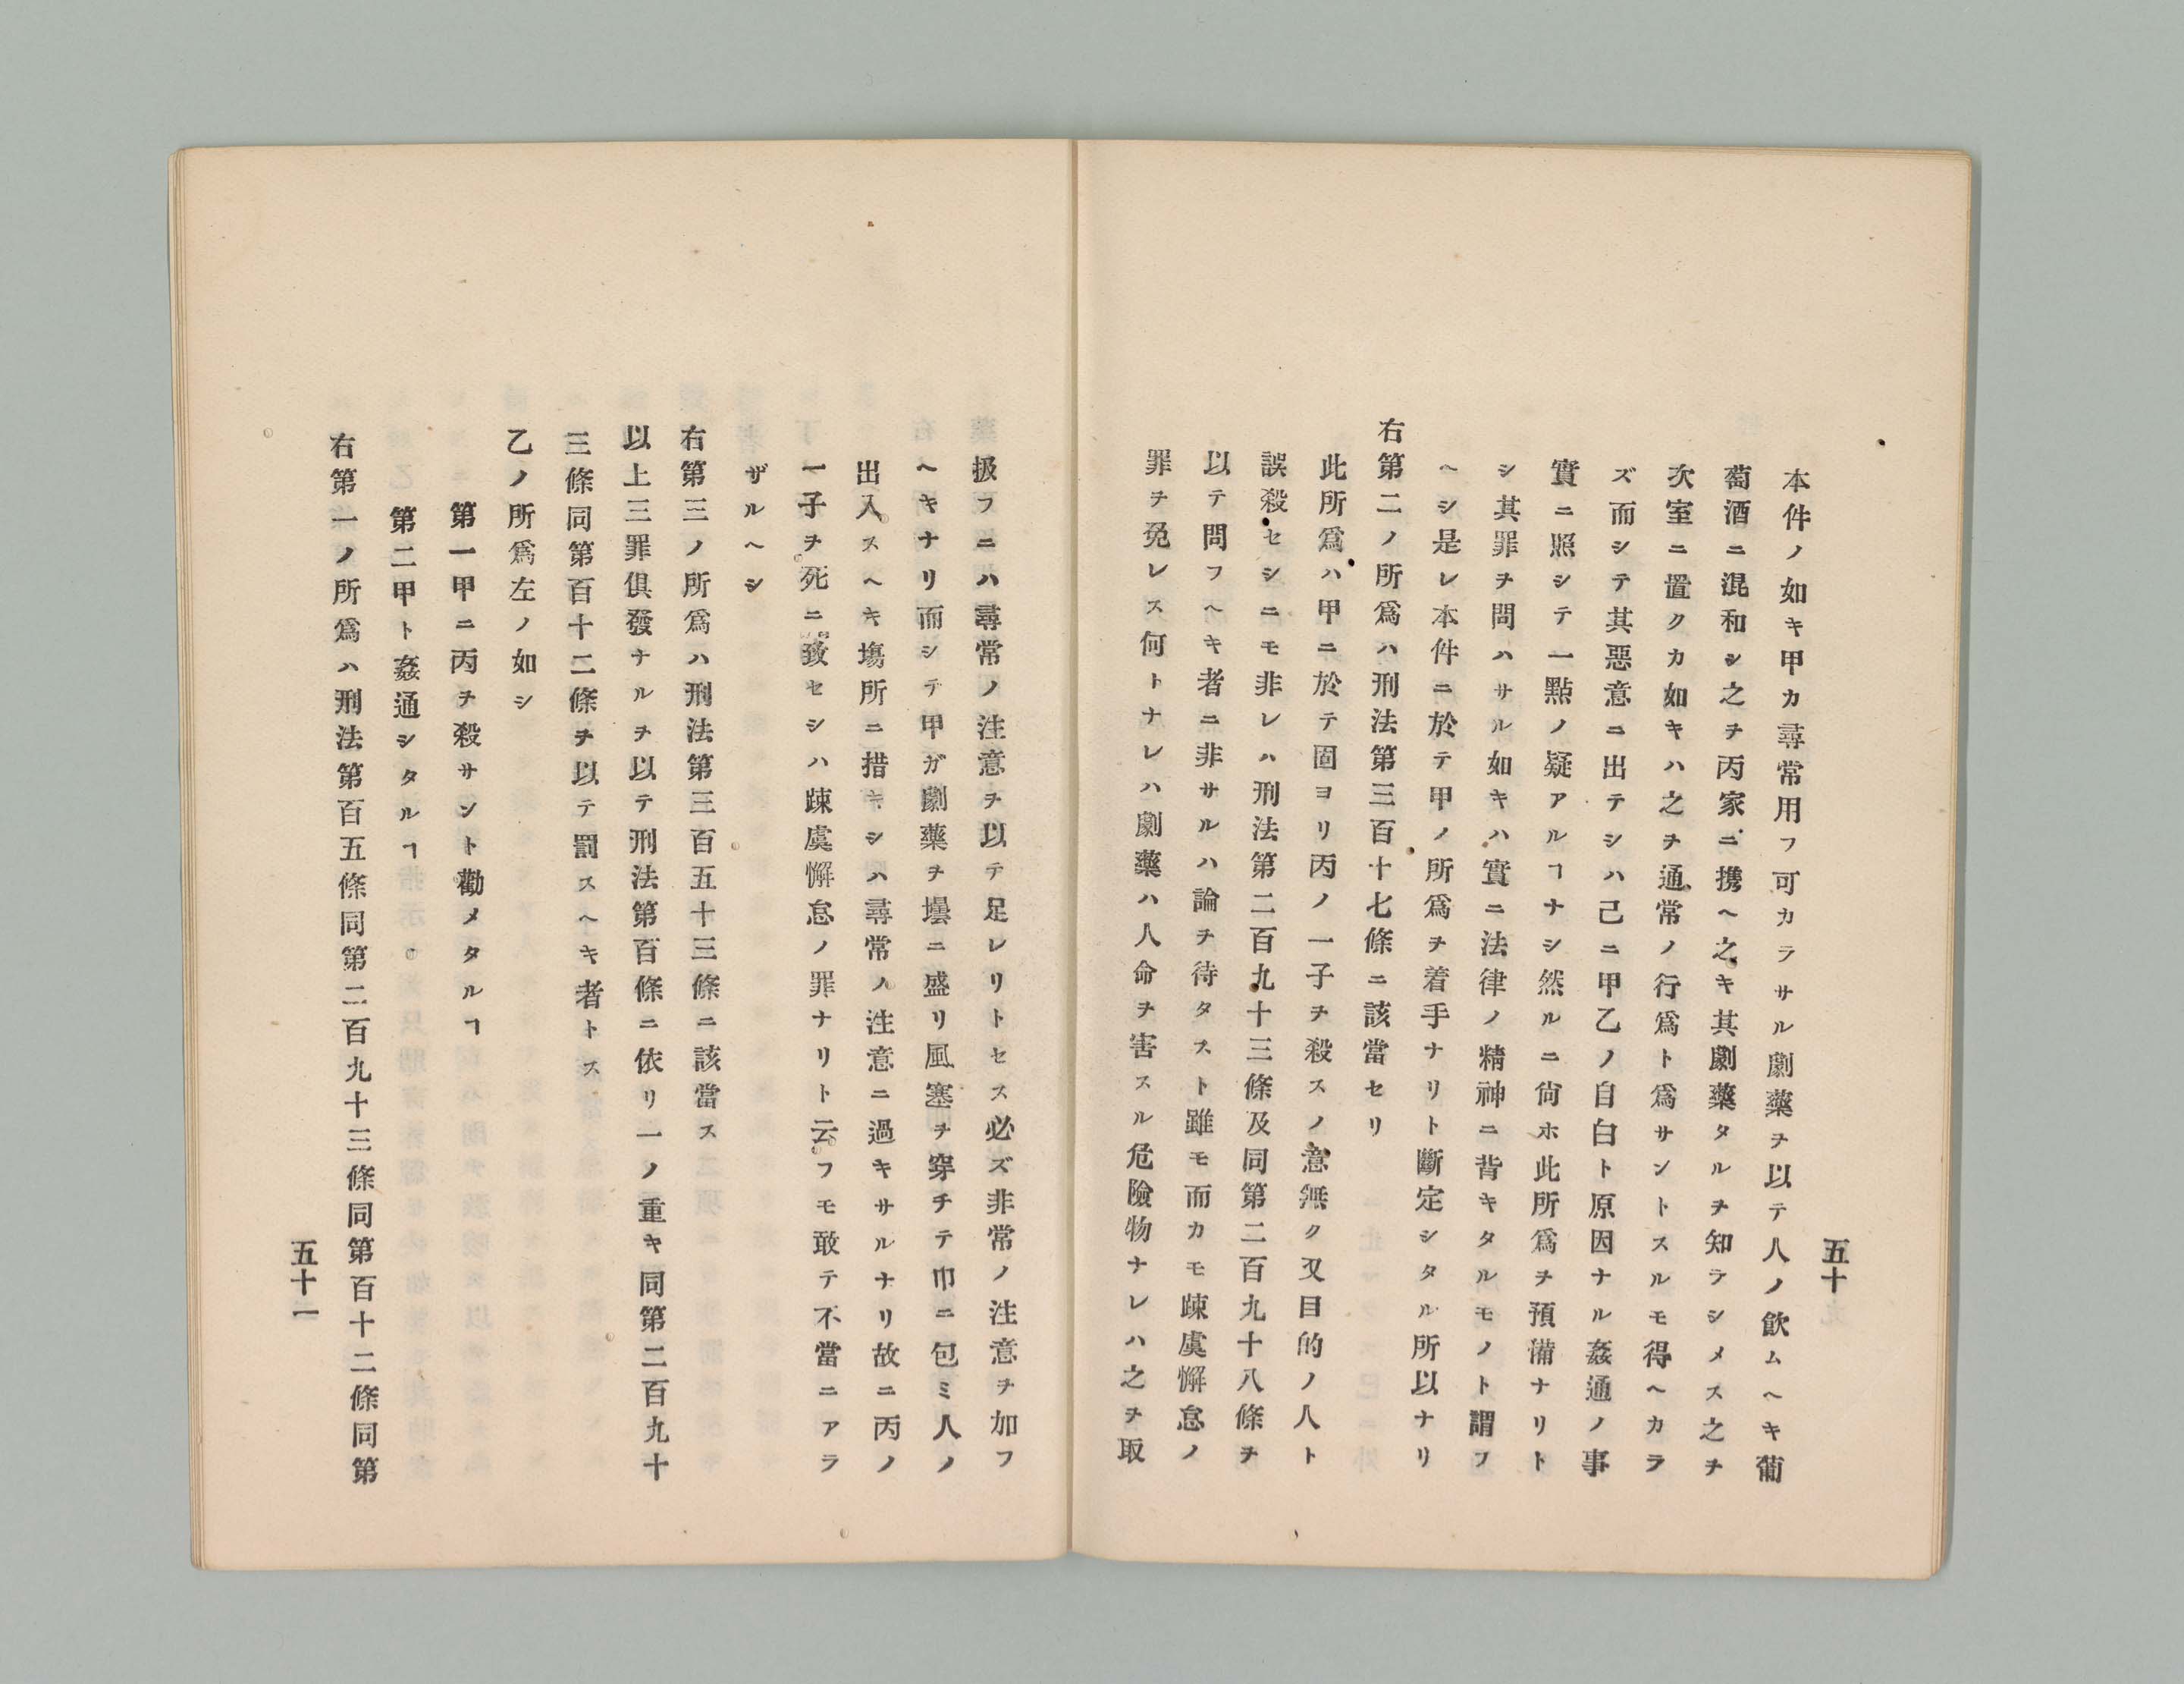 五十
本件ノ如キ甲カ尋常用フ可カラサル劇藥ヲ以テ人ノ飮ムヘキ葡
萄酒ニ混和シ之ヲ丙家ニ携ヘ之キ其劇藥タルヲ知ラシメス之ヲ
次室ニ置クカ如キハ之ヲ通常ノ行爲ト爲サントスルモ得ヘカラ
ズ而シテ其惡意ニ出テシハ己ニ甲乙ノ自白ト原因ナル姦通ノ事
實ニ照シテ一點ノ疑アルヿナシ然ルニ尙ホ此所爲ヲ預備ナリト
シ其罪ヲ問ハサル如キハ實ニ法律ノ精神ニ背キタルモノト謂フ
ヘシ是レ本件ニ於テ甲ノ所爲ヲ着手ナリト斷定シタル所以ナリ
右第二ノ所爲ハ刑法第三百十七條ニ該當セリ
此所爲ハ甲ニ於テ固ヨリ丙ノ一子ヲ殺スノ意無ク又目的ノ人ト
誤殺セシニモ非レハ刑法第二百九十三條及同第二百九十八條ヲ
以テ問フヘキ者ニ非サルハ論ヲ待タスト雖モ而カモ疎虞懈怠ノ
罪ヲ免レス何トナレハ劇藥ハ人命ヲ害スル危險物ナレハ之ヲ取
扱フニハ尋常ノ注意ヲ以テ足レリトセス必ズ非常ノ注意ヲ加フ
ヘキナリ而シテ甲ガ劇藥ヲ壜ニ盛リ風塞ヲ穿チテ巾ニ包ミ人ノ
出入スヘキ塲所ニ措キシハ尋常ノ注意ニ過キサルナリ故ニ丙ノ
一子ヲ死ニ致セシハ疎虞懈怠ノ罪ナリト云フモ敢テ不當ニアラ
ザルヘシ
右第三ノ所爲ハ刑法第三百五十三條ニ該當ス
以上三罪俱發ナルヲ以テ刑法第百條ニ依リ一ノ重キ同第二百九十
三條同第百十二條ヲ以テ罰スヘキ者トス
乙ノ所爲左ノ如シ
第一甲ニ丙ヲ殺サント勸メタルヿ
第二甲ト姦通シタルヿ
右第一ノ所爲ハ刑法第百五條同第二百九十三條同第百十二條同第
五十一